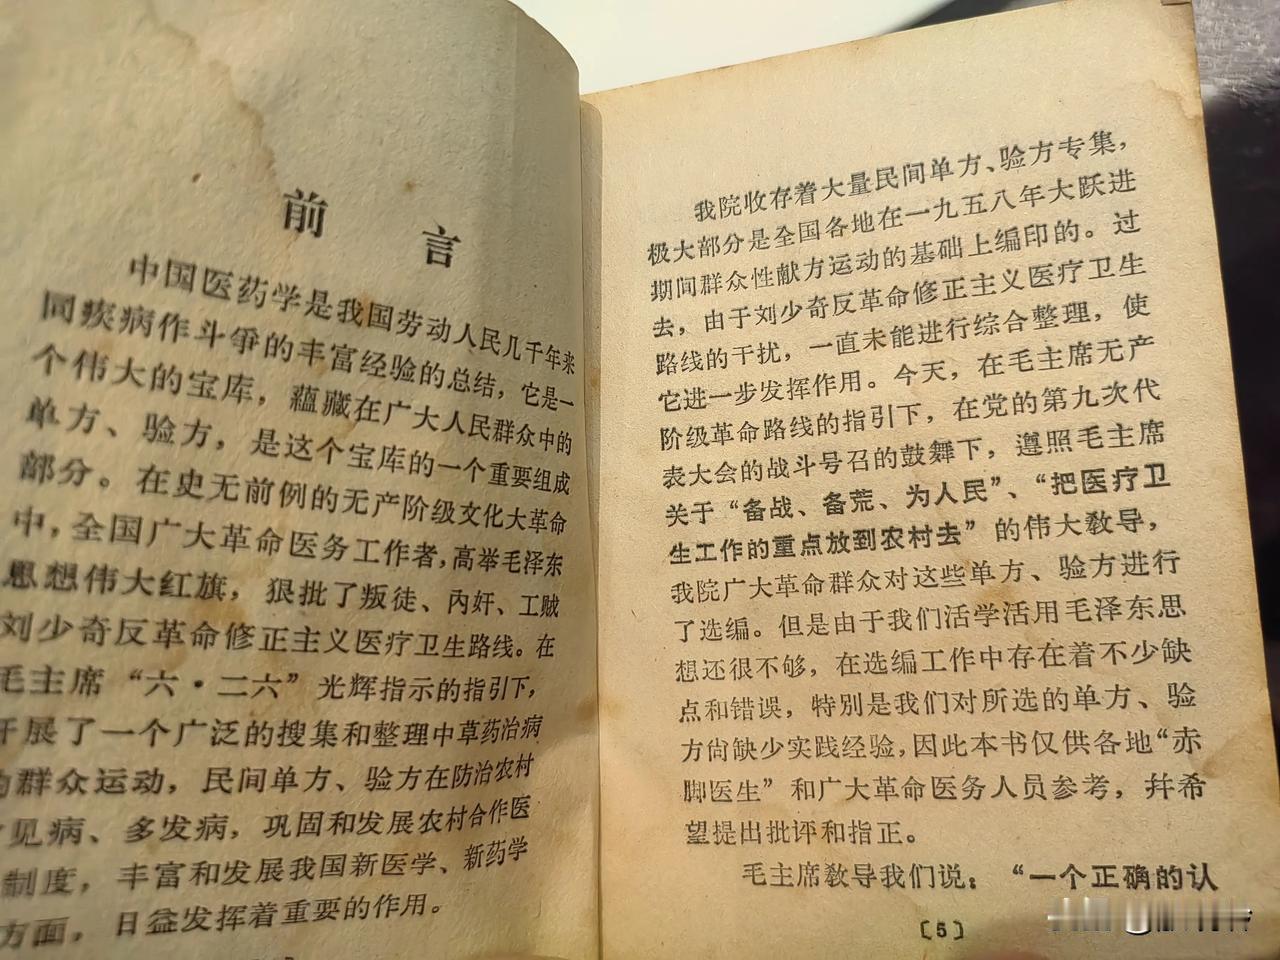 前言
中国医药学是我国劳动人民几千年来
同疾病作斗爭的丰富经验的总结，它是一
个伟大的宝库，蘊藏在广大人民群众中的
单方、验方，是这个宝库的一个重要组成
部分。在史无前例的无产阶级文化大革命
中，全国广大革命医务工作者，高举毛泽东
思想伟大红旗，狠批了叛徒、內奸、工贼
刘少奇反革命修正主义医疗卫生路线。在
毛主席“六·二六”光辉指示的指引下，
开展了一个广泛的搜集和整理中草药治病
的群众运动，民间单方、验方在防治农村
见病、多发病，巩固和发展农村合作医
制度，丰富和发展我国新医学、新药学
方面，日益发挥着重要的作用。
我院收存着大量民间单方、验方专集，
极大部分是全国各地在一九五八年大跃进
期间群众性献方运动的基础上编印的。过
去，由于刘少奇反革命修正主义医疗卫生
路线的干扰，一直未能进行综合整理，使
它进一步发挥作用。今天，在毛主席无产
阶级革命路线的指引下，在党的第九次代
表大会的战斗号召的鼓舞下，遵照毛主席
关于“备战、备荒、为人民”、“把医疗卫
生工作的重点放到农村去”的伟大教导，
我院广大革命群众对这些单方、验方进行
了选编。但是由于我们活学活用毛泽东思
想还很不够，在选编工作中存在着不少缺
点和错误，特别是我们对所选的单方、验
方尙缺少实践经验，因此本书仅供各地“赤
脚医生”和广大革命医务人员参考，幷希
望提出批评和指正。
毛主席教导我们说：“一个正确的认
〔5〕